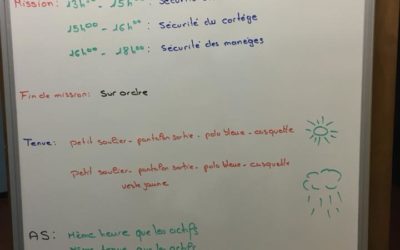 Mission: 13h00 - 15h00: Sécurité
15h00 - 16h00: Sécurité du cortége
16h00 - 18h00: Sécurité des manèges
Fin de mission: Sur ordre
Tenue: petit soulier - pantalon sortie - polo bleue - casquette
petit soulier - pantalon sortie - polo bleue - casquette
veste jaune
AS: Même heure que les actifs
Même tenue que les actifs